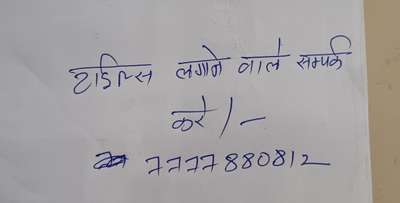 टाईल्स लगाने वाले सम्पर्क
करे /-
7777880812